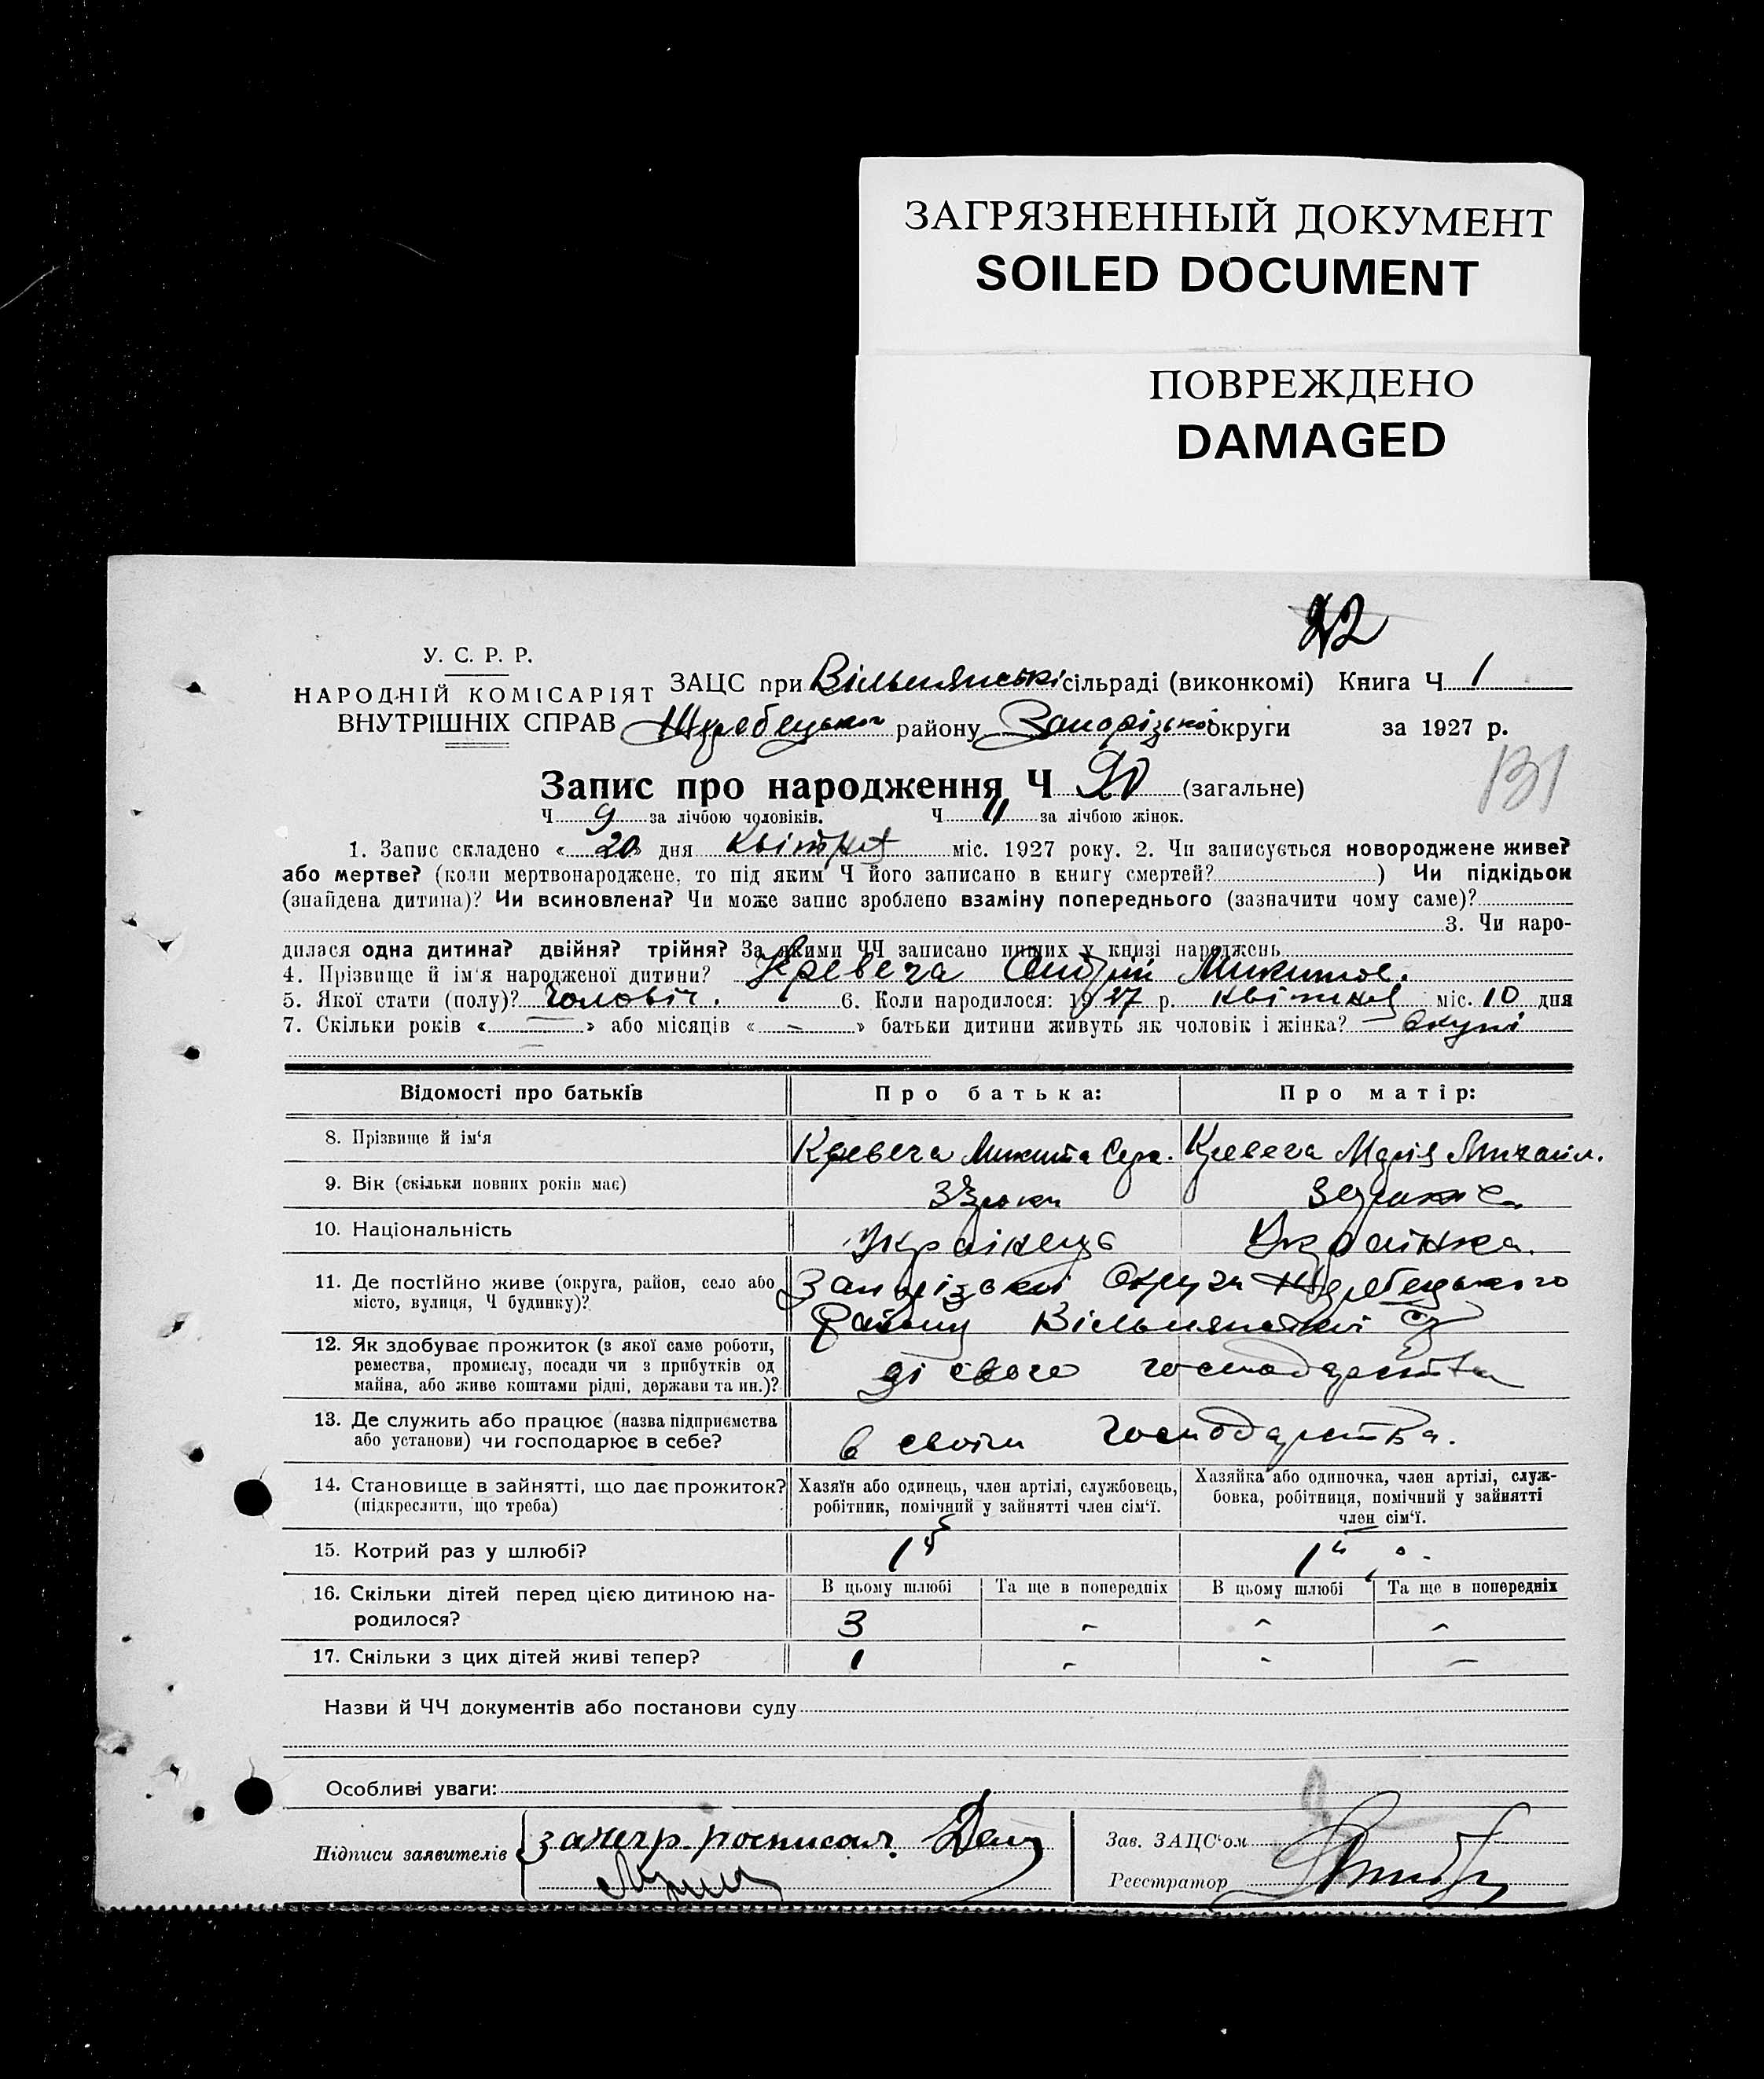 ЗАГРЯЗНЕННЫЙ ДОКУМЕНТ
SOILED DOCUMENT
ПОВРЕЖДЕНО
DAMAGED
У. С. Р. Р.
НАРОДНІЙ КОМІСАРІЯТ
ВНУТРІШНІХ СПРАВ
ЗАЦС при Вільнянській сільраді (виконкомі) Книга Ч 1
Жеребецького району Запорізької округи за 1927 р.
131
Запис про народження Ч 20 (загальне)
Ч 9 за лічбою чоловіків. Ч 11 за лічбою жінок.
1. Запис складено «20» дня Квітня міс. 1927 року. 2. Чи записується новороджене живе?
або мертве? (коли мертвонароджене, то під яким Ч його записано в книгу смертей? ) Чи підкідьок
(знайдена дитина)? Чи всиновлена? Чи може запис зроблено взаміну попереднього (зазначити чому саме)?
3. Чи наро-
дилася одна дитина? двійня? трійня? За якими ЧЧ записано инших у книзі народжень
4. Прізвище й ім'я народженої дитини? Кревега Андрій Микитов.
5. Якої стати (полу)? Чоловіч. 6. Коли народилося: 1927 р. квітня міс. 10 дня
7. Скільки років «—» або місяців «—» батьки дитини живуть як чоловік і жінка?
Відомості про батьків Про батька: Про матір:
8. Прізвище й ім'я Кревега Микита Кревега Марія Михайл.
9. Вік (скільки повних років має) 33 роки
10. Національність Українець Українка.
11. Де постійно живе (округа, район, село або Запорізької Округи Жеребецького
місто, вулиця, Ч будинку)? Району Вільнянської
12. Як здобуває прожиток (з якої саме роботи,
ремества, промислу, посади чи з прибутків од зі свого господарства
майна, або живе коштами рідні, держави та ин.)?
13. Де служить або працює (назва підприємства
або установи) чи господарює в себе? в своїм господарства.
14. Становище в зайнятті, що дає прожиток? Хазяїн або одинець, член артілі, службовець, Хазяйка або одиночка, член артілі, служ-
(підкреслити, що треба) робітник, помічний у зайнятті член сім'ї. бовка, робітниця, помічний у зайнятті
член сім'ї.
15. Котрий раз у шлюбі? 1й 1й
16. Скільки дітей перед цією дитиною на- В цьому шлюбі Та ще в попередніх В цьому шлюбі Та ще в попередніх
родилося? 3 - - -
17. Скільки з цих дітей живі тепер? 1 - - —
Назви й ЧЧ документів або постанови суду
Особливі уваги:
Підписи заявителів
Зав. ЗАЦС'ом
Реєстратор